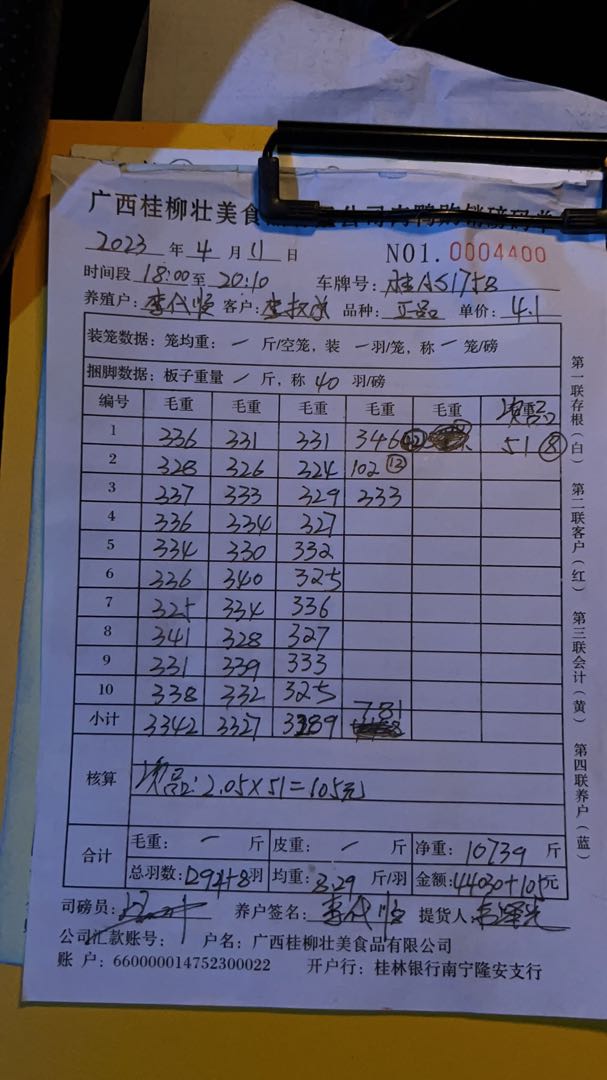 广西桂柳壮美食品有限公司肉鸭购销磅码单
2023 年 4 月 11 日 NO1.0004400
时间段 18:00 至 20:10 车牌号: 桂AS1758
养殖户: 李代顺 客户: 品种: 正品 单价: 4.1
装笼数据: 笼均重: 一 斤/空笼, 装 一 羽/笼, 称 一 笼/磅
捆脚数据: 板子重量 一 斤, 称 40 羽/磅
编号 毛重 毛重 毛重 毛重 毛重 次品
1 336 331 331 346 42 51 8
2 328 326 324 102 12
3 337 333 329 333
4 336 334 327
5 334 330 332
6 336 340 325
7 325 334 336
8 341 328 327
9 331 339 333
10 338 332 325
小计 3342 3327 3289 781
核算 次品: 2.05×51=105元
合计 毛重: 一 斤 皮重: 一 斤 净重: 10739 斤
总羽数: 1294+8 羽 均重: 8.29 斤/羽 金额: 44030+105 元
司磅员: 养户签名: 李代顺 提货人:
公司汇款账号: 户名: 广西桂柳壮美食品有限公司
账 户: 660000014752300022 开户行: 桂林银行南宁隆安支行
第一联存根(白) 第二联客户(红) 第三联会计(黄) 第四联养户(蓝)